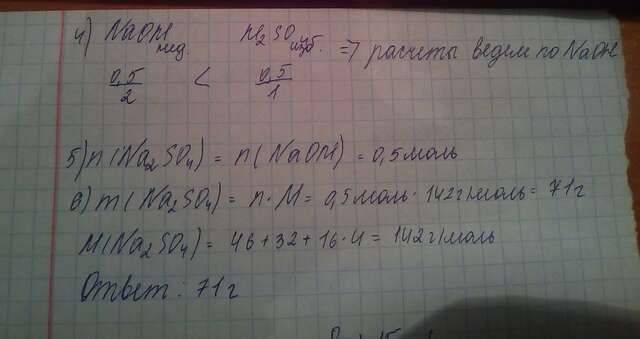 4) NaOH нед. H₂SO₄ изб. => расчеты ведем по NaOH
0,5/2 < 0,5/1
5) n(Na₂SO₄) = n(NaOH) = 0,5 моль
6) m(Na₂SO₄) = n·M = 0,5 моль · 142 г/моль = 71 г
M(Na₂SO₄) = 46+32+16·4 = 142 г/моль
Ответ: 71 г